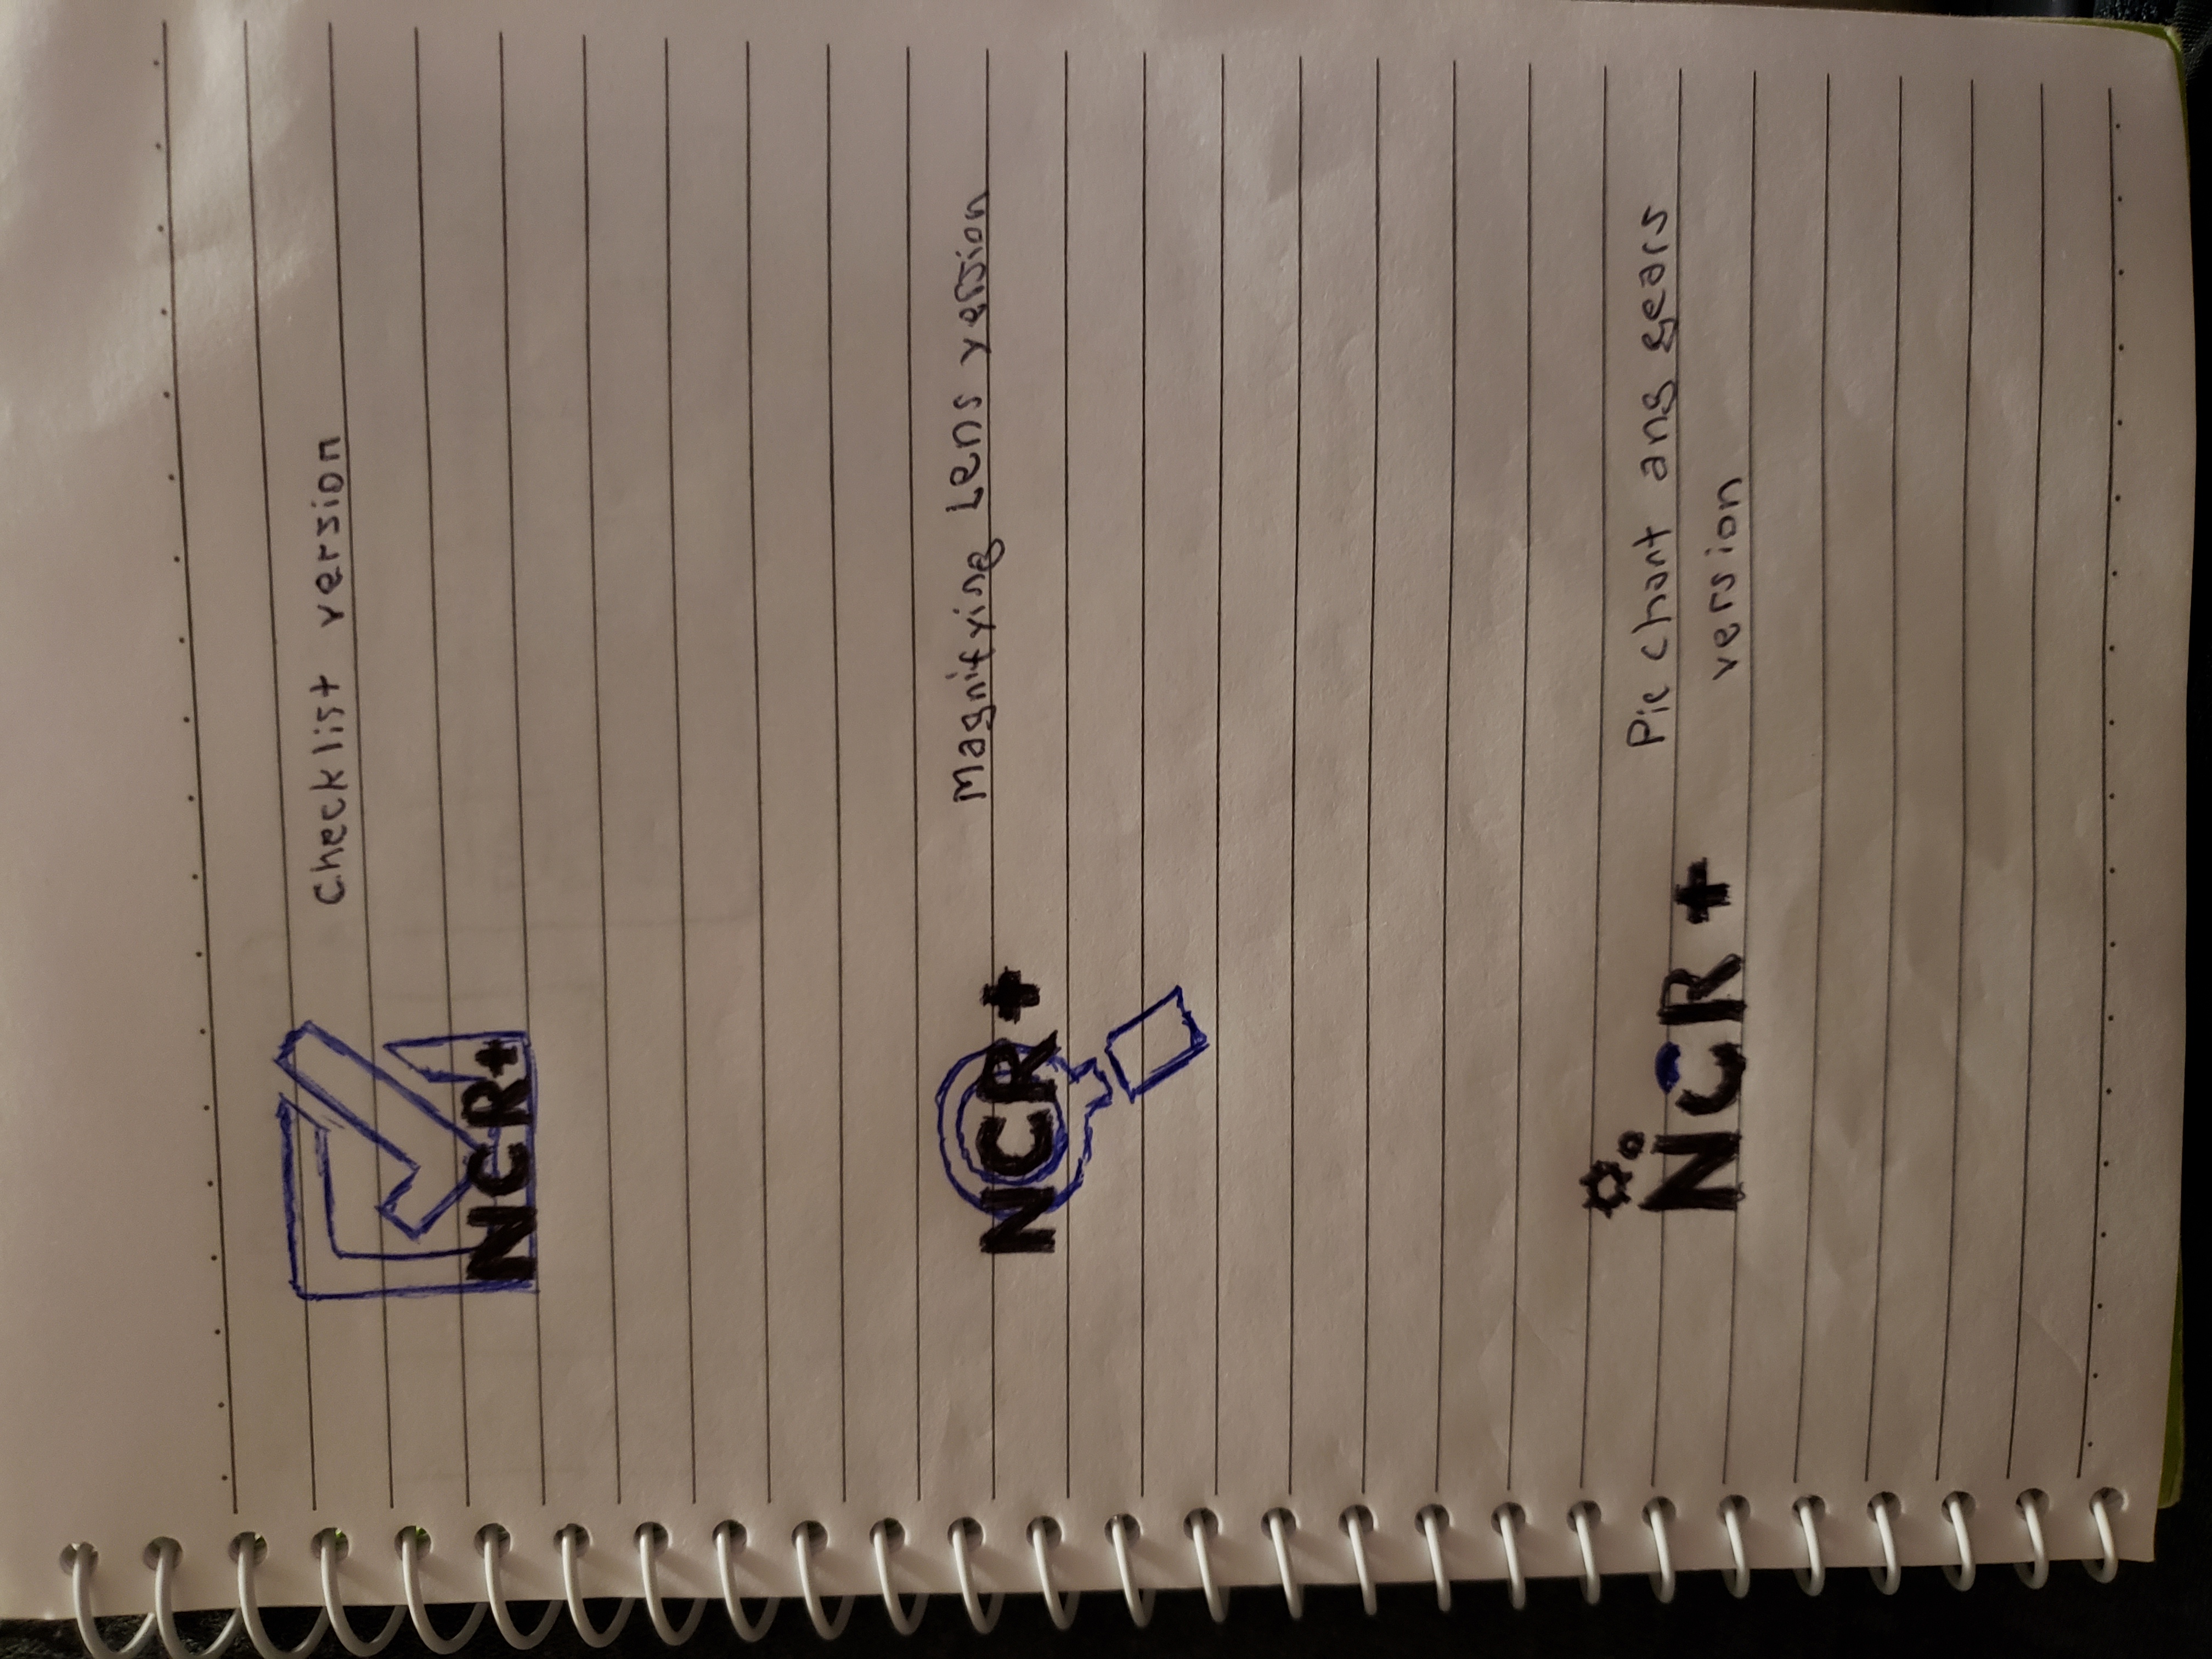 NCR+
Checklist version
NCR+
Magnifying Lens version
NCR+
Pie chart ang gears
version